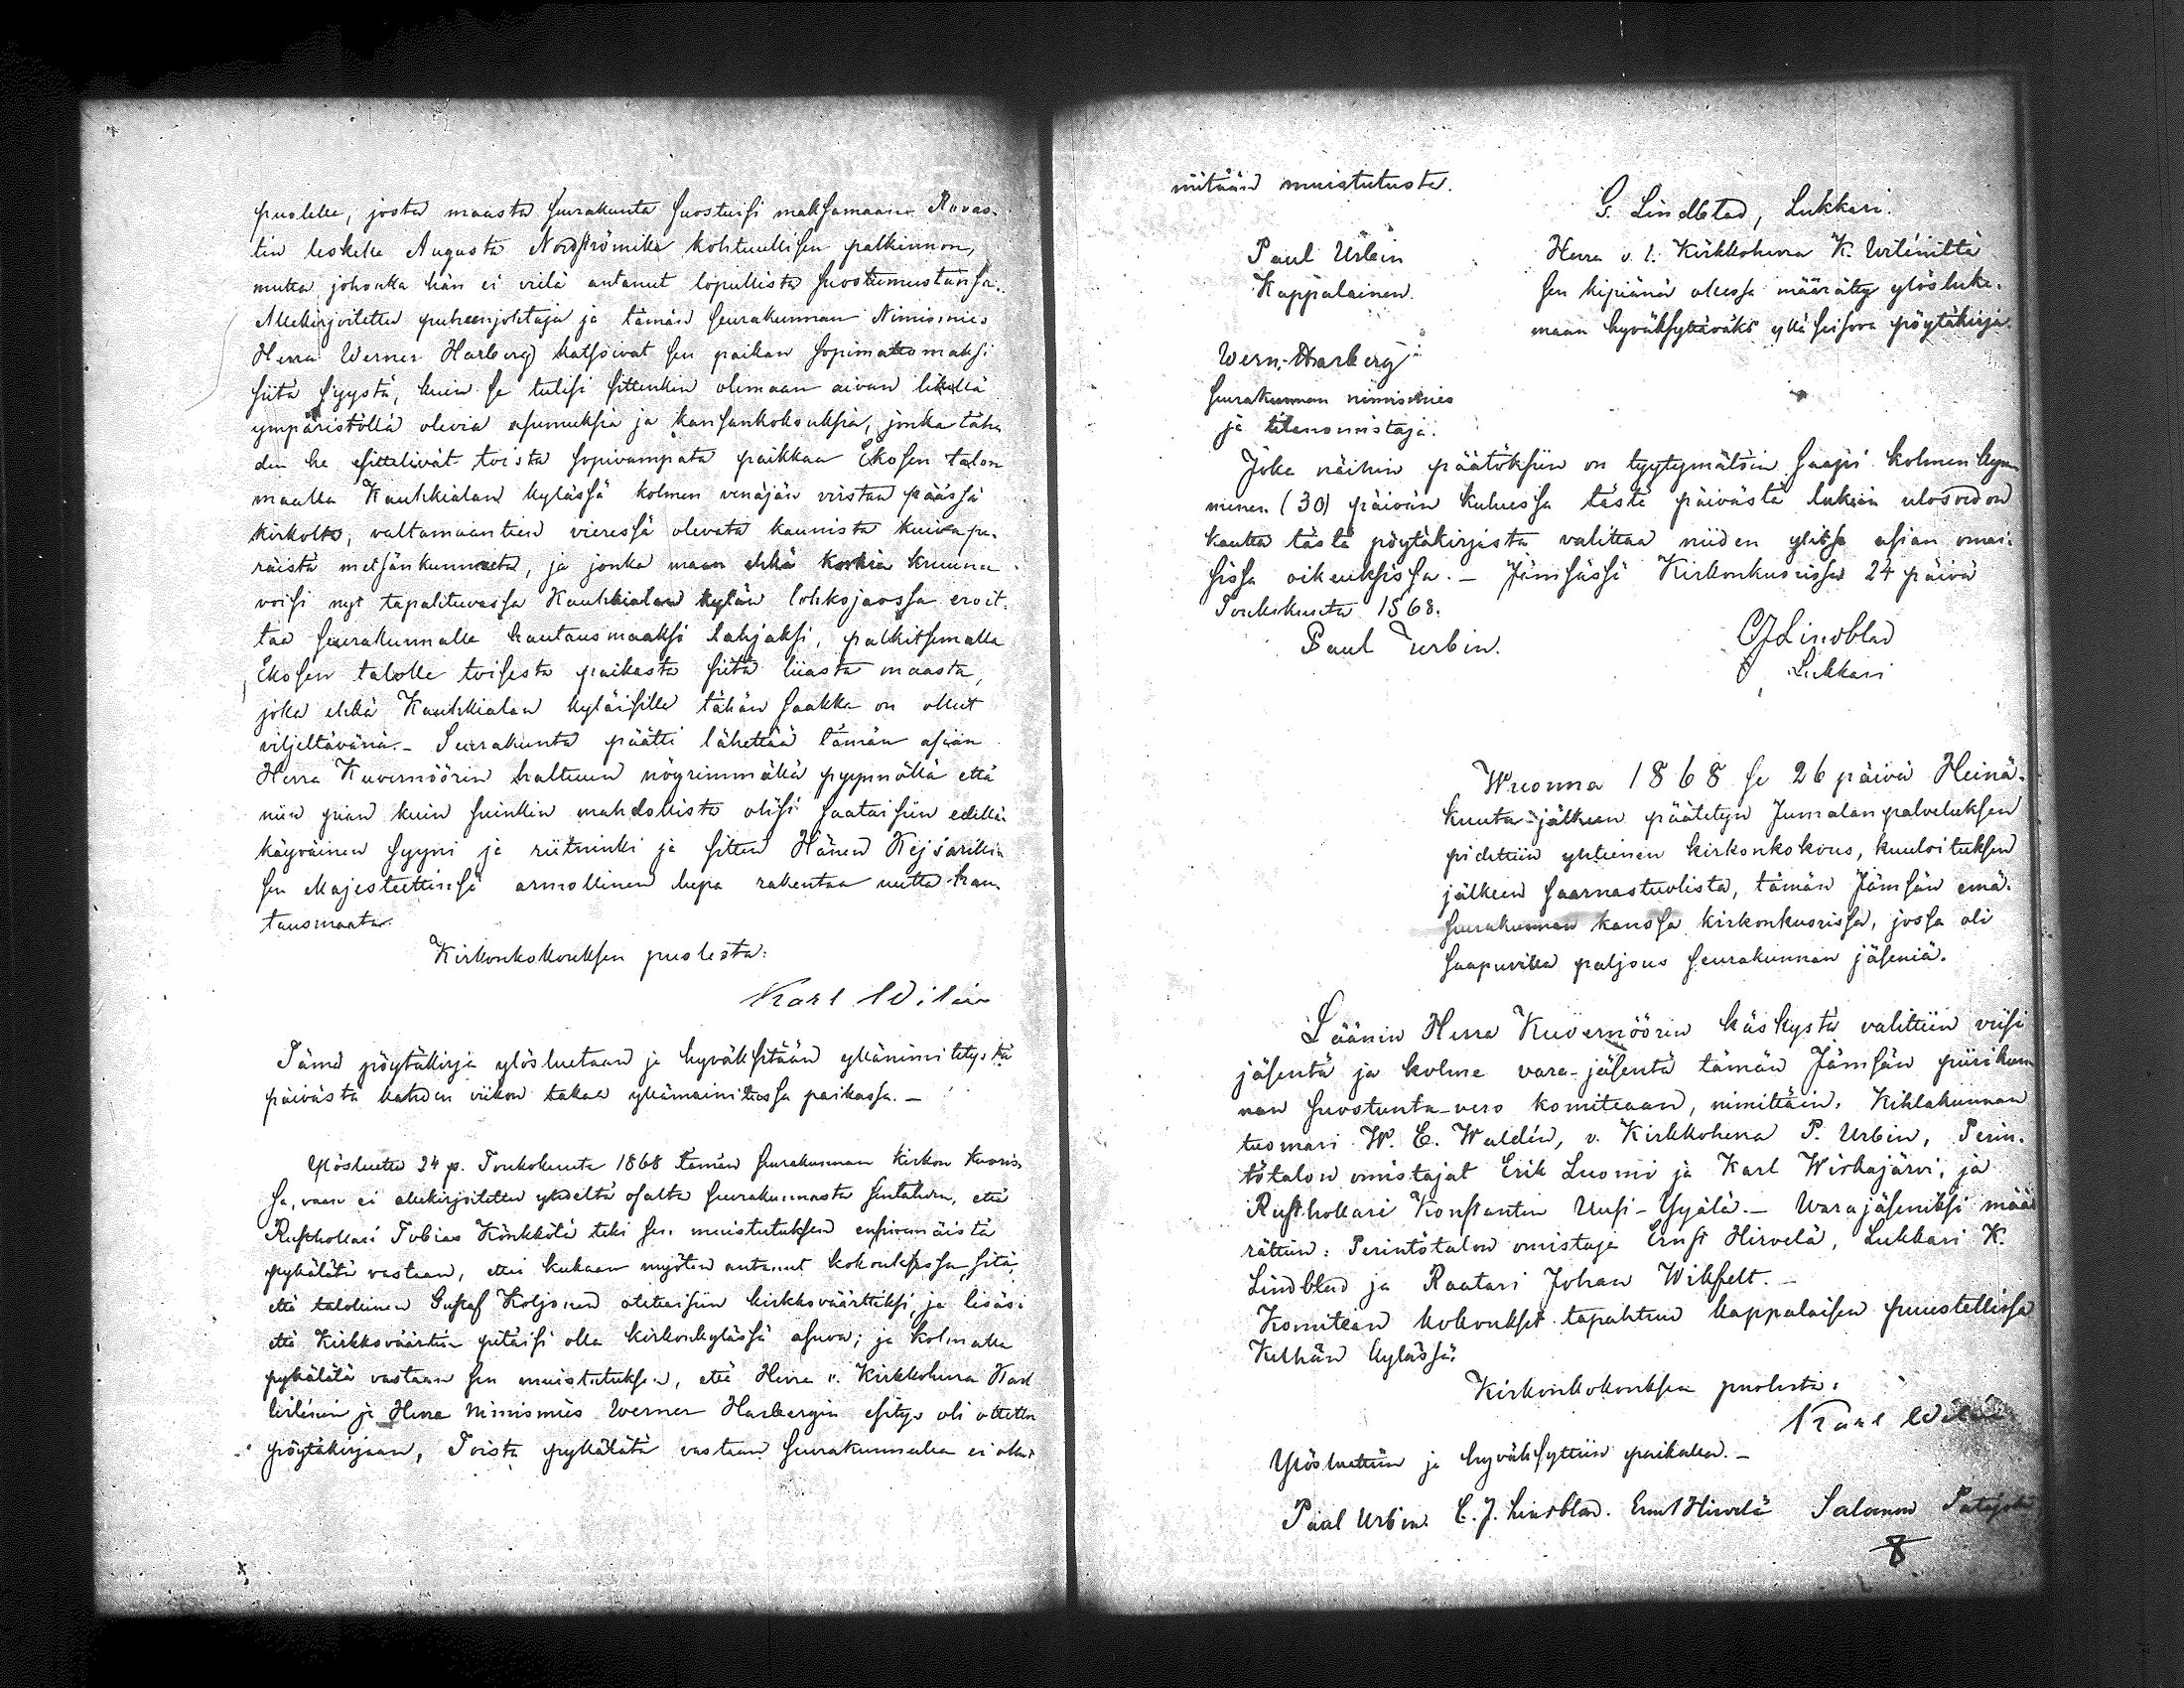 puolelle, josta maasta seurakunta suostuisi maksamaan Rovas-
tin leskelle Augusta Nordströmille kohtuullisen palkinnon,
mutta johonka hän ei vielä antanut lopullista suostumustansa.
Allekirjoitettu puheenjohtaja ja tämän seurakunnan Nimismies
Herra Werner Harberg katsoivat sen paikan sopimattomaksi
siitä syystä, kuin se tulisi sittenkin olemaan aivan likellä
ympäristöllä olevia asumuksia ja kansankokouksia, jonka täh-
den he esittelivät toista sopivampata paikkaa Ekosen talon
maalla Kauhkialan kylässä kolmen venäjän virstan päässä
kirkolta, valtamaantien vieressä olevata kaunista kuivape-
räistä metsänkunnasta, ja jonka maan ehkä korkia kruunu
voisi nyt tapahtuvassa Kauhkialan kylän lohkojaossa eroit-
taa seurakunnalle hautausmaaksi lahjaksi, palkitsemalla
Ekosen talolle toisesta paikasta siitä liiasta maasta,
joka ehkä Kauhkialan kyläisillä tähän saakka on ollut
viljeltävänä. – Seurakunta päätti lähettää tämän asian
Herra Kuvernöörin haltuun nöyrimmällä pyynnöllä että
niin pian kuin suinkin mahdollista olisi saataisiin edellä
käyväinen syyni ja riitninki ja sitten Hänen Kejsarilli-
sen Majesteettinsä armollinen lupa rakentaa uutta hau-
tausmaata.
Kirkonkokouksen puolesta:
Karl Wilén
Tämä pöytäkirja ylösluetaan ja hyväksitään yllänimitetystä
päivästä kahden viikon takaa ylämainitussa paikassa. –
Ylösluettu 24 p. Toukokuuta 1868 tämän seurakunnan kirkon kuoris-
sa, vaan ei allekirjoitettu yhdeltä osalta seurakunnasta sentähden, että
Rusthollari Tobias Könkkölä teki sen muistutuksen ensimmäistä
pykälätä vastaan, ettei kukaan myöten antanut kokouksessa sitä,
että talollinen Gustaf Koljonen otettaisiin kirkkoväärttiksi, ja lisäsi
että Kirkkoväärtin pitäisi olla kirkonkylässä asuva; ja kolmatta
pykälätä vastaan sen muistutuksen, että Herra v. Kirkkoherra Karl
Wilénin ja Herra Nimismies Werner Harbergin esitys oli otettu
pöytäkirjaan, Toista pykälätä vastaan seurakunnalla ei ollut
mitään muistutusta.
G. Lindblad, Lukkari.
Paul Urbin
Kappalainen.
Herra v. t. Kirkkoherra K. Wiléniltä
sen kipiänä ollessa määrätty ylösluke-
maan hyväksyttäväksi yllä seisova pöytäkirja.
Wern. Harberg
seurakunnan nimismies
ja tilanomistaja.
Joka näihin päätöksiin on tyytymätöin saapi kolmen kym-
menen (30) päivän kuluessa tästä päivästä lukein ulosvedon
kautta tästä pöytäkirjasta valittaa niiden ylitse asian omai-
sissa oikeuksissa. – Jämsässä Kirkonkuorissa 24 päivä
Toukokuuta 1868.
Paul Urbin.
C J Lindblad
Lukkari
Wuonna 1868 se 26 päivä Heinä-
kuuta jälkeen päätetyn Jumalan palveluksen
pidettiin yhteinen kirkonkokous, kuuloituksen
jälkeen saarnastuolista, tämän Jämsän emä-
seurakunnan kanssa kirkonkuorissa, jossa oli
saapuvilla paljous seurakunnan jäseniä.
Läänin Herra Kuvernöörin käskystä valittiin viisi
jäsentä ja kolme vara-jäsentä tämän Jämsän piirikun-
nan suostunta-vero komiteaan, nimittäin. Kihlakunnan
tuomari W. E. Waldén, v. Kirkkoherra P. Urbin, Perin-
tötalon omistajat Erik Luomi ja Karl Wirkajärvi, ja
Rusthollari Konstantin Uusi-Yijälä. – Warajäseniksi mää-
rättiin: Perintötalon omistaja Ernst Hirvelä, Lukkari K.
Lindblad ja Raatari Johan Wikfelt. –
Komitean kokoukset tapahtuu kappalaisen puustellissa
Kelhän kylässä.
Kirkonkokouksen puolesta:
Karl Wilén
Ylösluettiin ja hyväksyttiin paikalla. –
Paul Urbin. C. J. Lindblad. Ernst Hirvelä Salomon
8